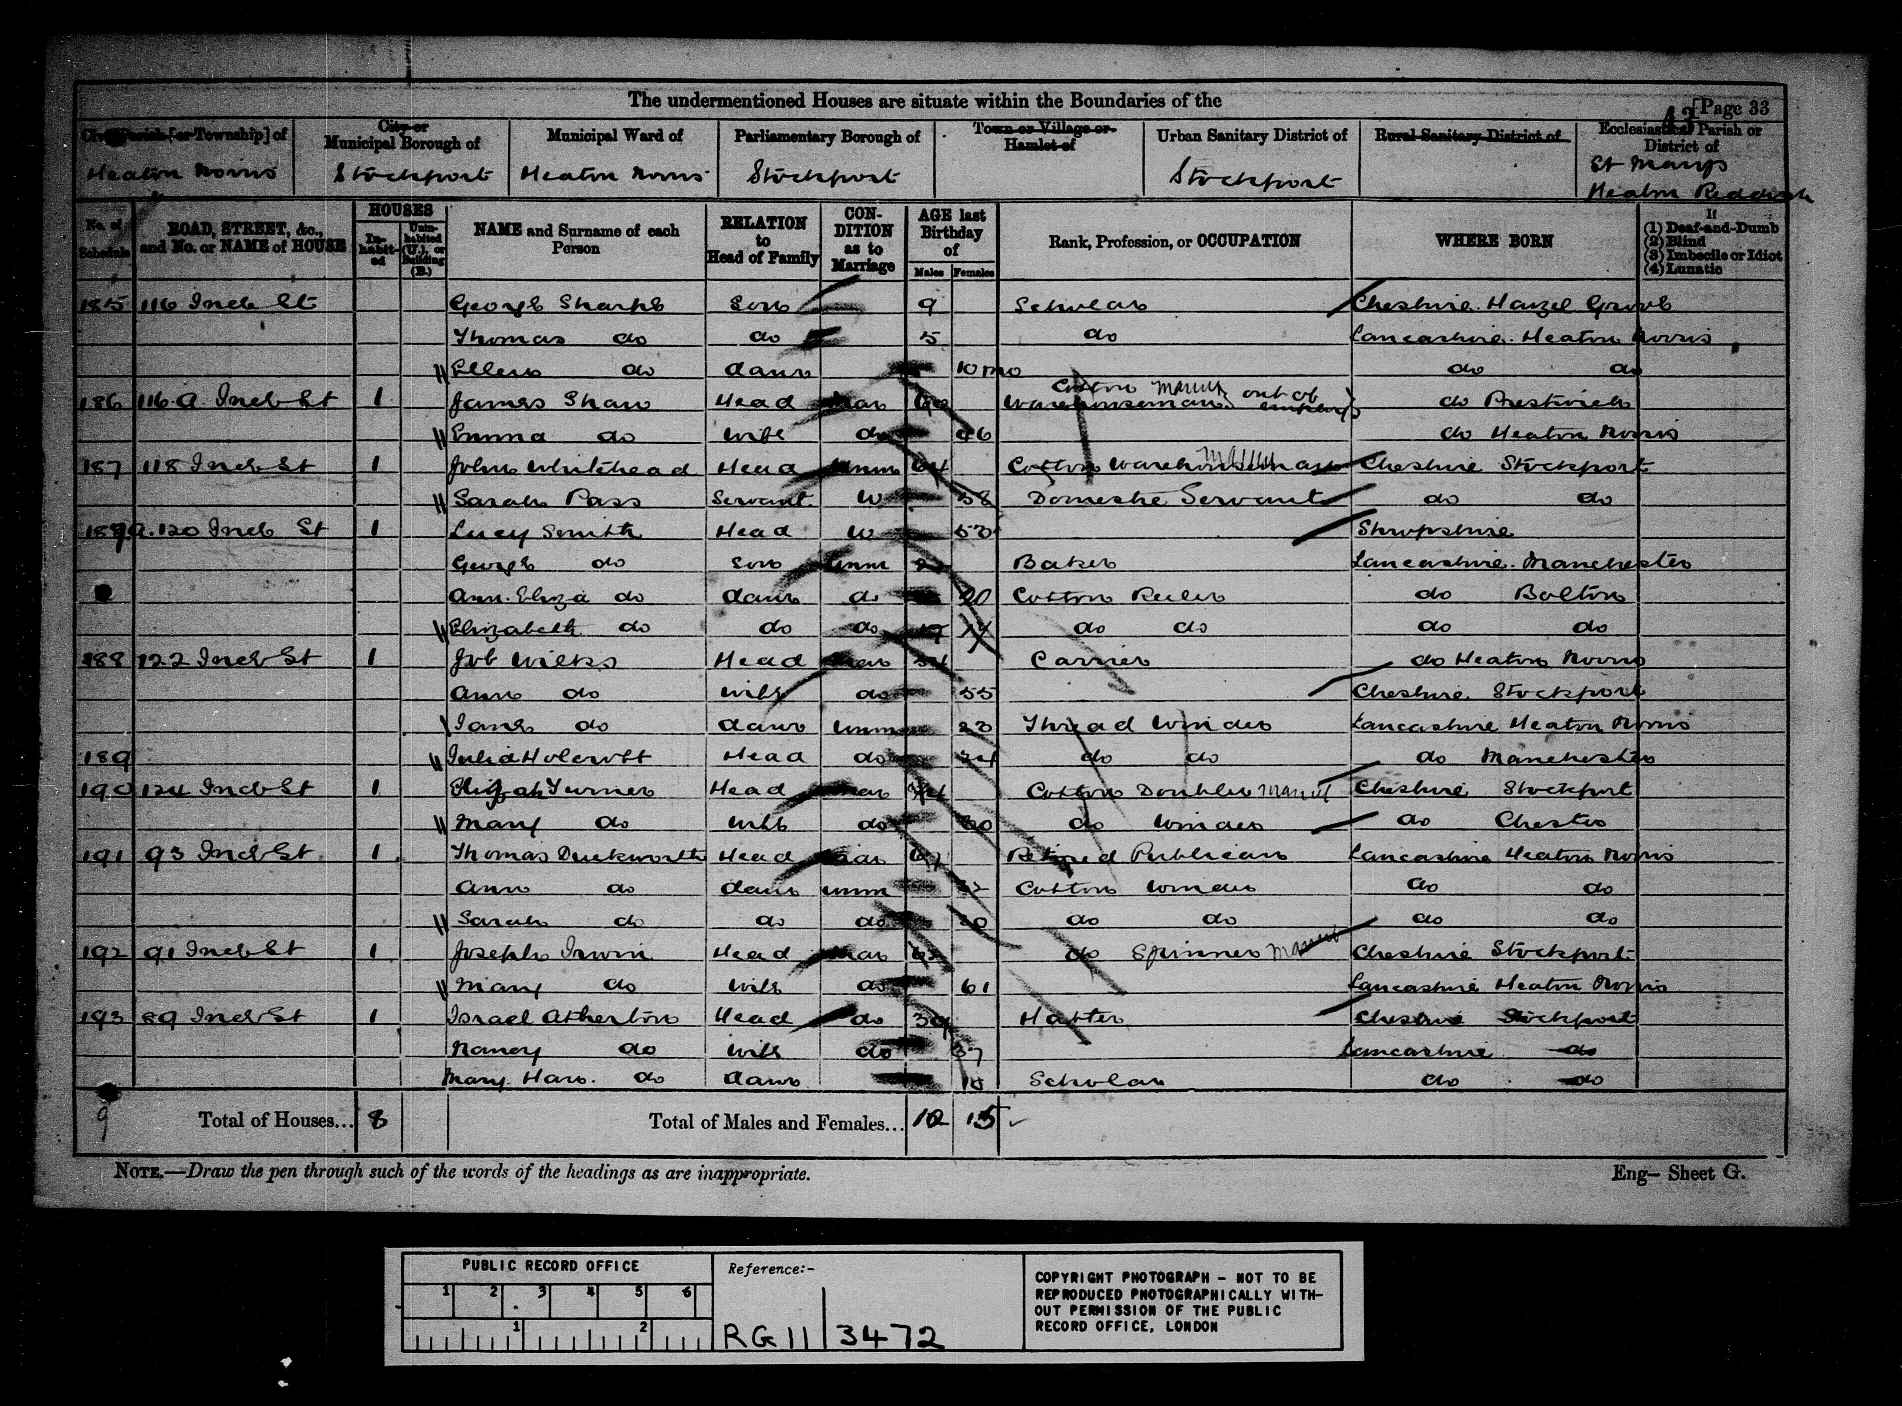 The undermentioned Houses are situate within the Boundaries of the
[Page 33
Civil Parish [or Township] of
City or Municipal Borough of
Municipal Ward of
Parliamentary Borough of
Town or Village or Hamlet of
Urban Sanitary District of
Rural Sanitary District of
Ecclesiastical Parish or District of
Heaton Norris
Stockport
Heaton Norris
Stockport
Stockport
St Marys Heaton Reddish
No. of Schedule
ROAD, STREET, &c., and No. or NAME of HOUSE
HOUSES
Inhabited
Uninhabited (U.), or Building (B.)
NAME and Surname of each Person
RELATION to Head of Family
CONDITION as to Marriage
AGE last Birthday of
Males
Females
Rank, Profession, or OCCUPATION
WHERE BORN
If
(1) Deaf-and-Dumb
(2) Blind
(3) Imbecile or Idiot
(4) Lunatic
185 116 Inch St George Sharpe Son 9 Scholar Cheshire. Hazel Grove
Thomas do do 5 do Lancashire. Heaton Norris
Ellen do daur 10 mo do do
186 116 a Inch St 1 James Shaw Head mar Cotton Warehouseman out of employ do Prestwich
Emma do wife do 46 do Heaton Norris
187 118 Inch St 1 John Whitehead Head Unm 64 Cotton Warehouseman Cheshire Stockport
Sarah Pass Servant W 58 Domestic Servant do do
120 Inch St 1 Lucy Smith Head W 53 Shropshire
George do Son Unm Baker Lancashire. Manchester
Ann. Eliza do daur do 20 Cotton Reeler do Bolton
Elizabeth do do do 17 do do do do
188 122 Inch St 1 Job Wilks Head mar 54 Carrier do Heaton Norris
Ann do wife do 55 Cheshire. Stockport
Jane do daur Unm 23 Thread Winder Lancashire Heaton Norris
189 Julia Holcroft Head do 24 do do do Manchester
190 124 Inch St 1 Elijah Turner Head mar Cotton Doubler Cheshire Stockport
Mary do wife do do Winder do Chester
191 93 Inch St 1 Thomas Duckworth Head mar Retired Publican Lancashire Heaton Norris
Ann do daur unm Cotton Winder do do
Sarah do do do 20 do do do do
192 91 Inch St 1 Joseph Irwin Head mar do Spinner Cheshire Stockport
Mary do wife do 61 Lancashire Heaton Norris
193 89 Inch St 1 Israel Atherton Head do 39 Hatter Cheshire Stockport
Nancy do wife do 37 Lancashire do
Mary. Han. do daur Scholar do do
9 Total of Houses... 8 Total of Males and Females... 12 15
NOTE.—Draw the pen through such of the words of the headings as are inappropriate.
Eng— Sheet G.
PUBLIC RECORD OFFICE
1 2 3 4 5 6
1 2
Reference:-
RG 11 3472
COPYRIGHT PHOTOGRAPH - NOT TO BE
REPRODUCED PHOTOGRAPHICALLY WITH-
OUT PERMISSION OF THE PUBLIC
RECORD OFFICE, LONDON